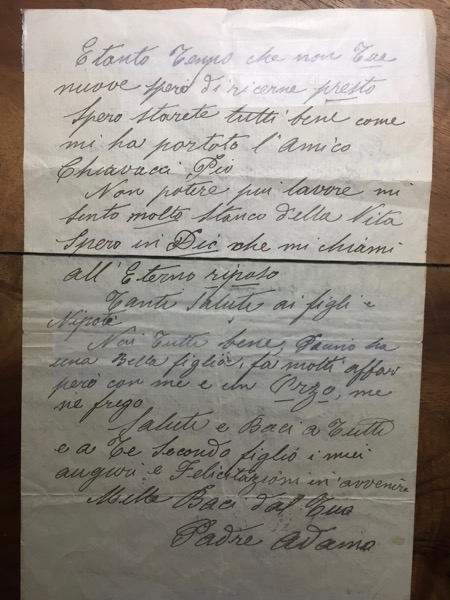 E tanto Tempo che non Tue
nuove spero di riceverne presto
Spero starete tutti bene come
mi ha portato l'Amico
Chiavacci Pio
Non potere piu lavore mi
sento molto stanco della Vita
Spero in Dio che mi chiami
all'Eterno riposo
Tanti Saluti ai figli e
Nipoti
Noi Tutti bene, ha
una Bella figlia, fa molti affari
però con me e un Orzo, me
ne frego
Saluti e Baci a Tutti
e a Te Secondo figlio i miei
auguri e Felicitazioni in avvenire
Mille Baci dal Tuo
Padre Adamo